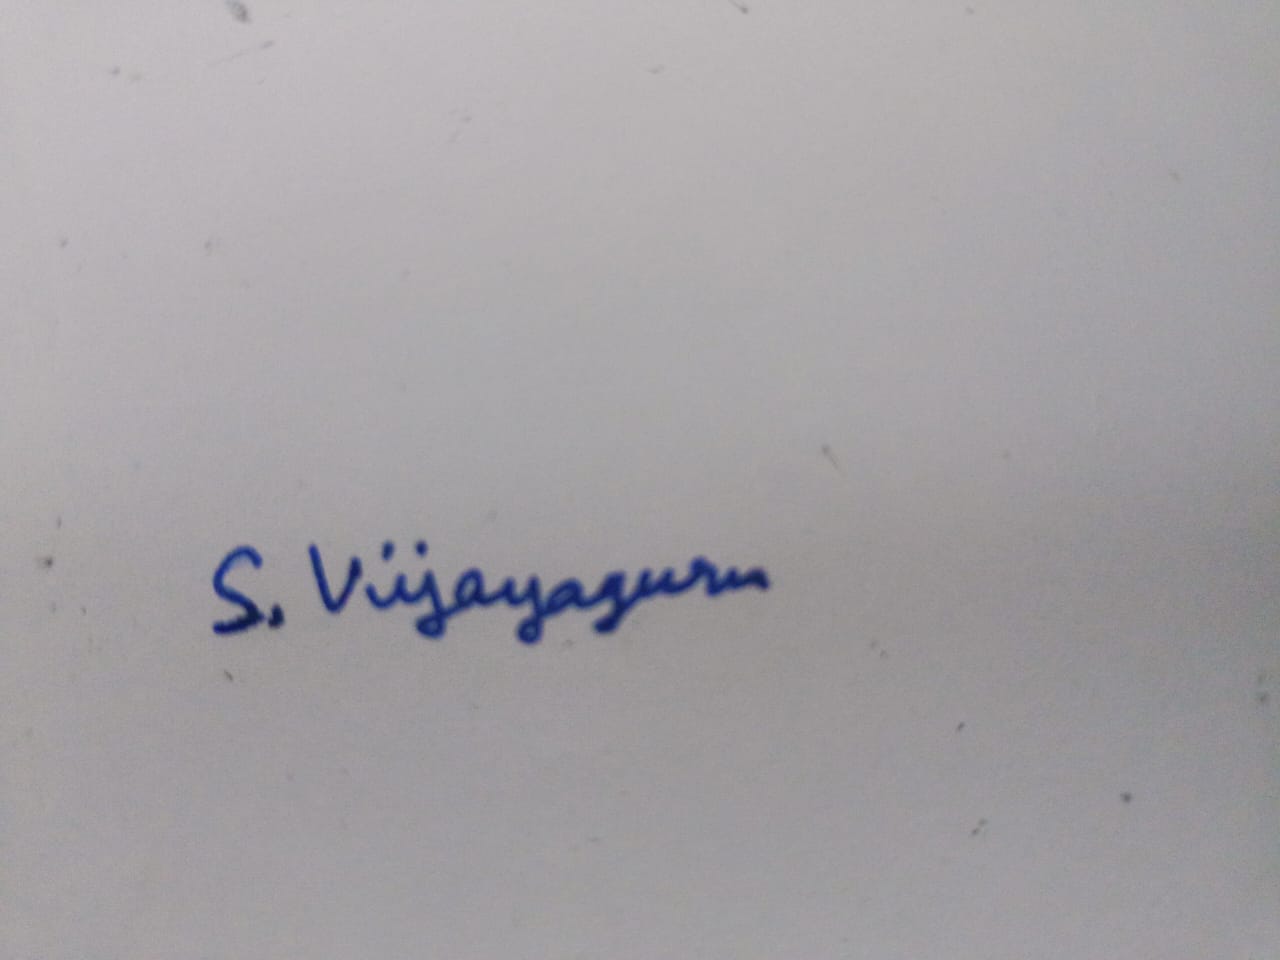 S. Vijayaguru